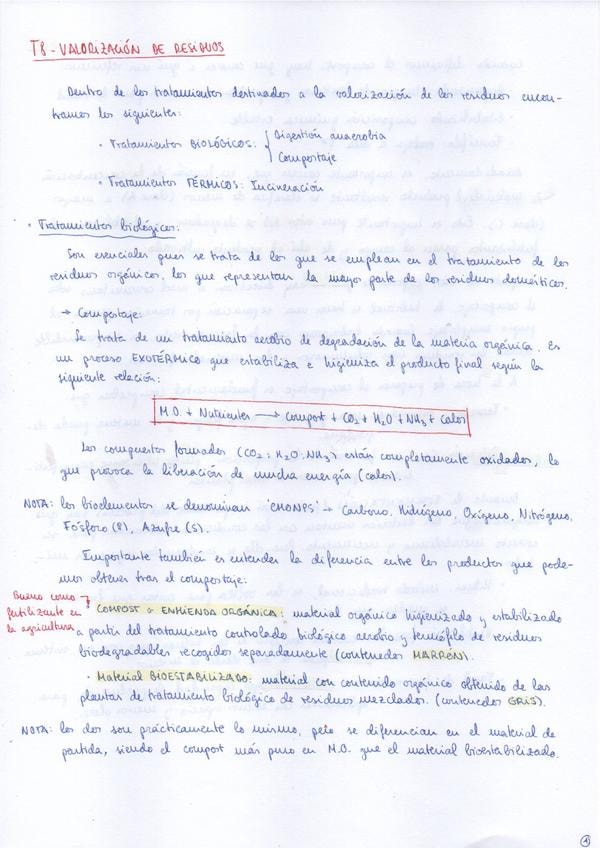 T8 - VALORIZACIÓN DE RESIDUOS
Dentro de los tratamientos destinados a la valorización de los residuos encon-
tramos los siguientes:
• Tratamientos BIOLÓGICOS: { Digestión anaerobia
Compostaje
• Tratamientos TÉRMICOS: Incineración
• Tratamientos biológicos:
Son esenciales pues se trata de los que se emplean en el tratamiento de los
residuos orgánicos, los que representan la mayor parte de los residuos domésticos.
→ Compostaje:
Se trata de un tratamiento aerobio de degradación de la materia orgánica. Es
un proceso EXOTÉRMICO que estabiliza e higieniza el producto final según la
siguiente relación:
M.O. + Nutrientes → compost + CO₂ + H₂O + NH₃ + calor
Los compuestos formados (CO₂; H₂O; NH₃) están completamente oxidados, lo
que provoca la liberación de mucha energía (calor).
NOTA: los bioelementos se denominan 'CHONPS' → Carbono, Hidrógeno, Oxígeno, Nitrógeno,
Fósforo (P), Azufre (S).
Importante también es entender la diferencia entre los productos que pode-
mos obtener tras el compostaje:
Bueno como
fertilizante en
la agricultura
• COMPOST o ENMIENDA ORGÁNICA: material orgánico higienizado y estabilizado
a partir del tratamiento controlado biológico aerobio y termófilo de residuos
biodegradables recogidos separadamente (contenedor MARRÓN).
• Material BIOESTABILIZADO: material con contenido orgánico obtenido de las
plantas de tratamiento biológico de residuos mezclados. (contenedor GRIS).
NOTA: los dos son prácticamente lo mismo, pero se diferencian en el material de
partida, siendo el compost más puro en M.O. que el material bioestabilizado.
1